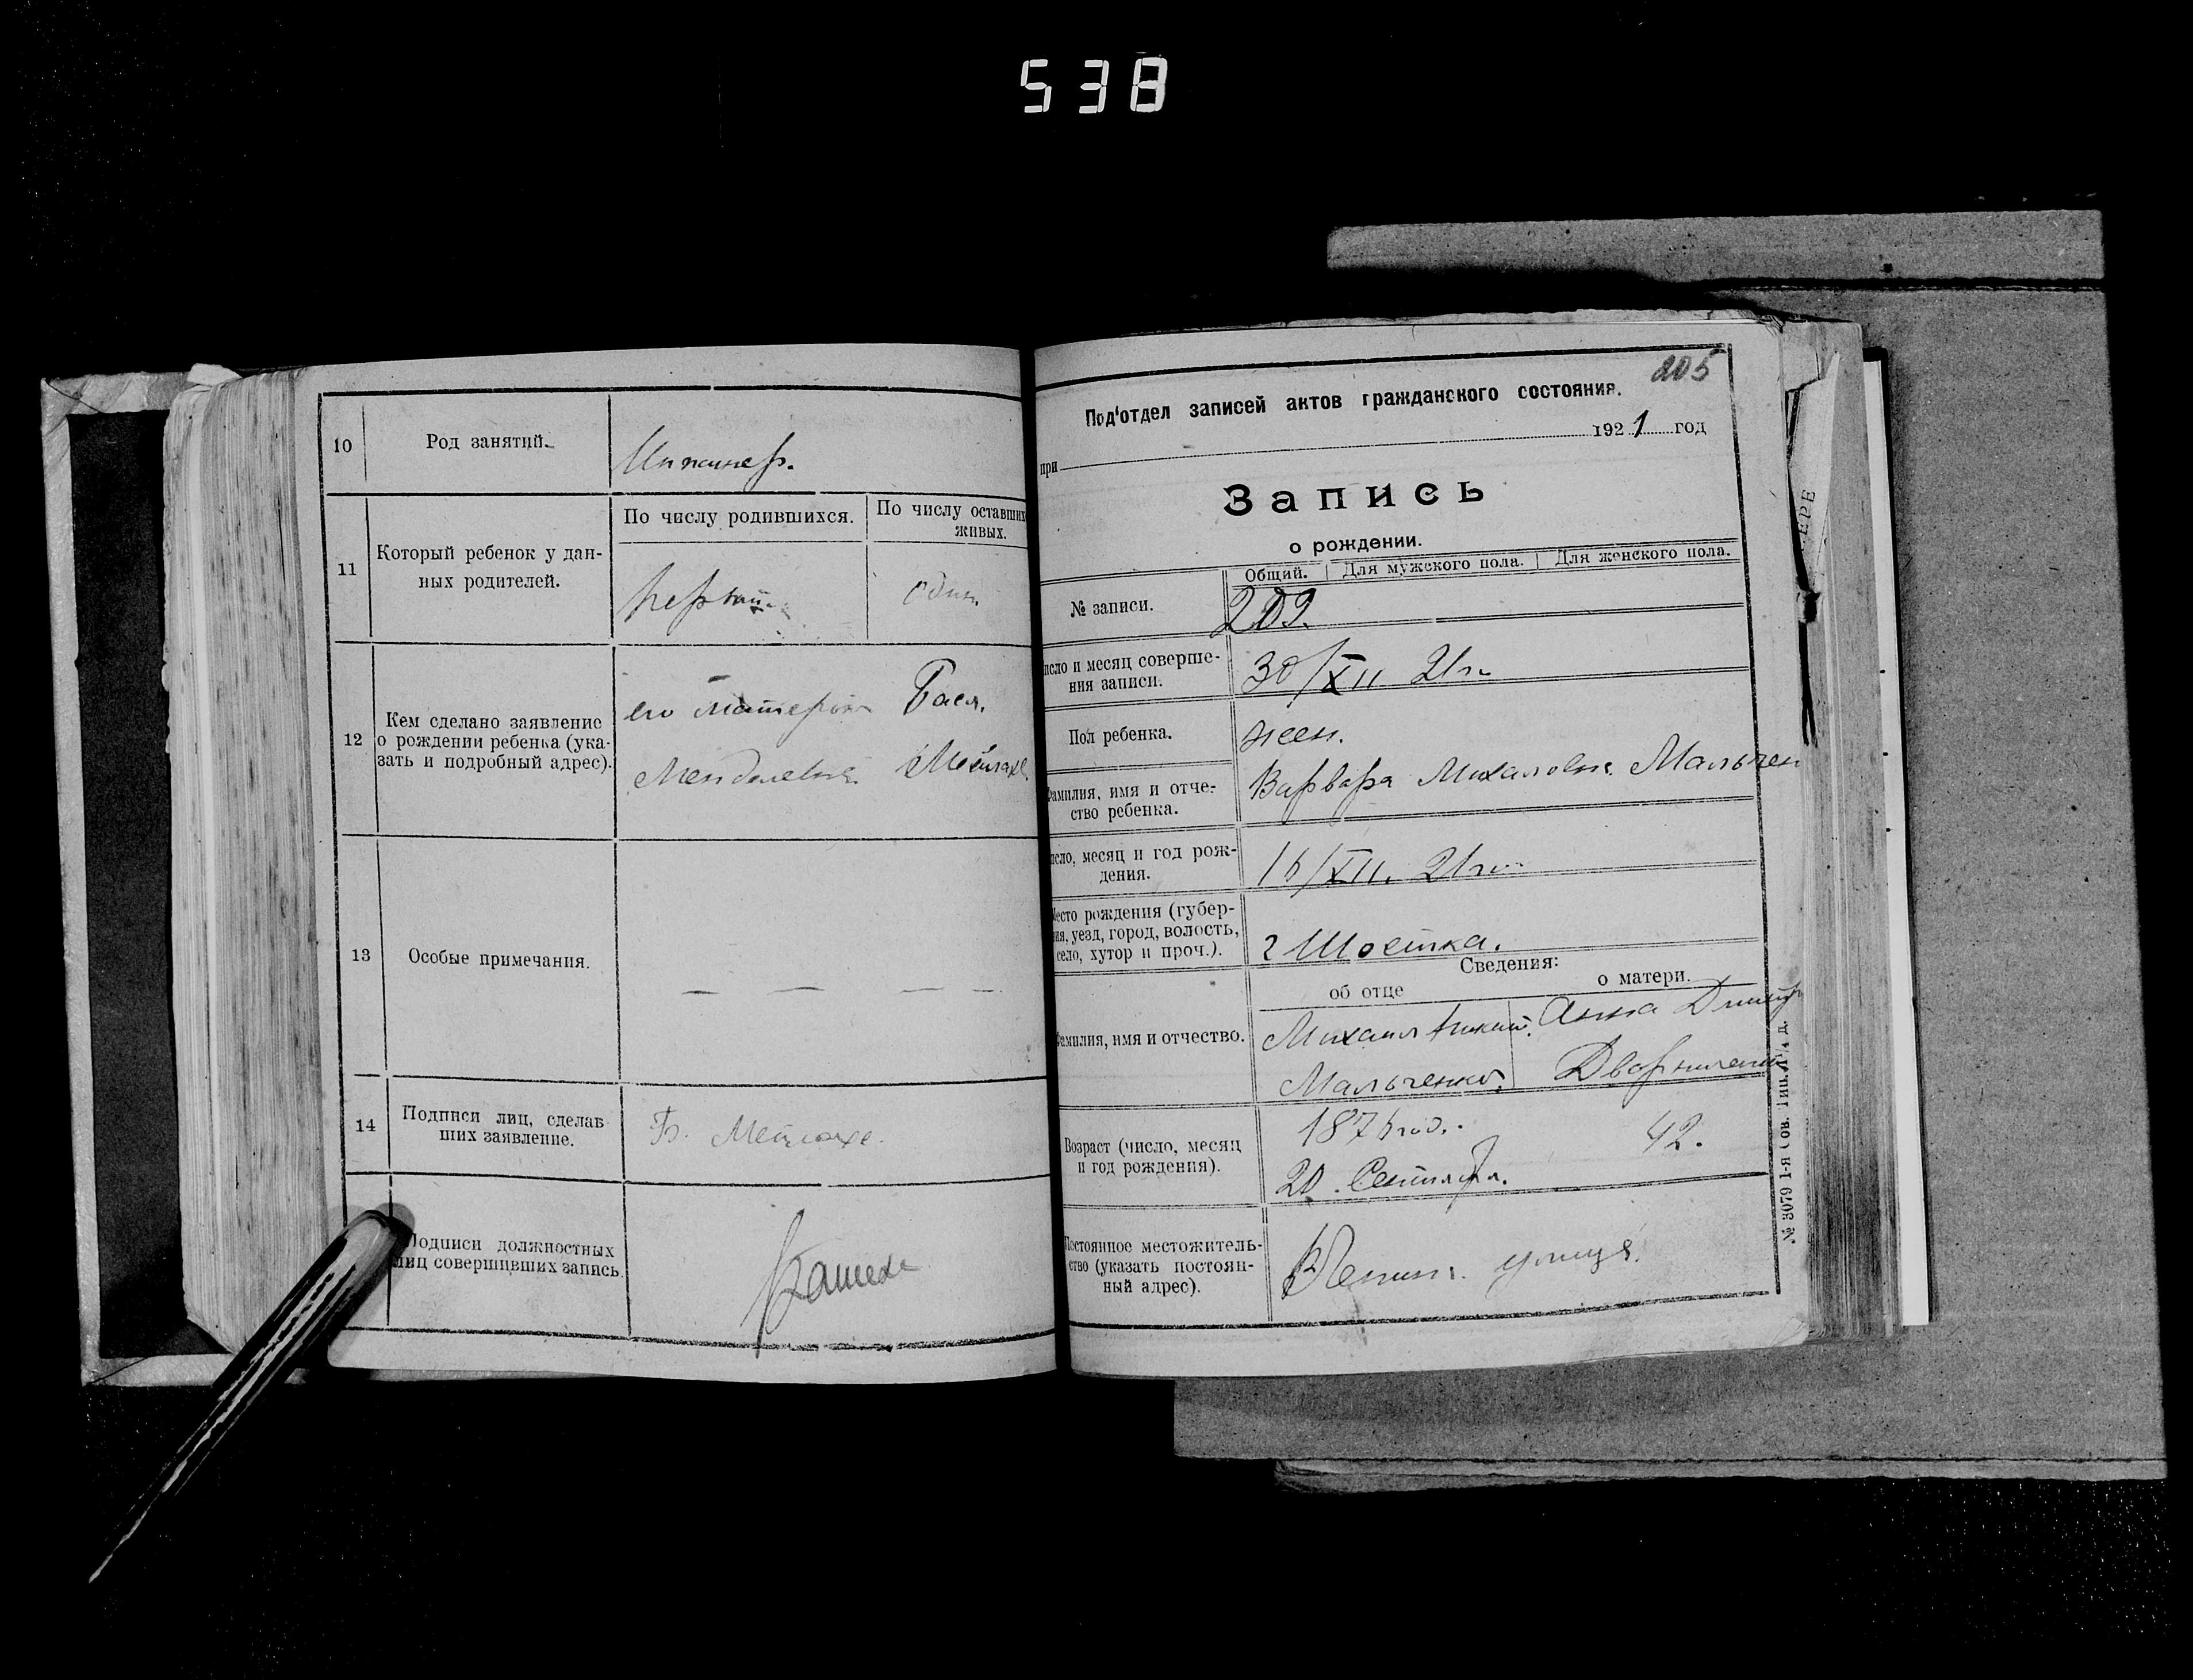 538
10 Род занятий. Инженер.
11 Который ребенок у дан-
ных родителей.
По числу родившихся. По числу оставших
живых.
первый один.
12 Кем сделано заявление
о рождении ребенка (ука-
зать и подробный адрес).
его матерью Бася.
Менделевна Мейлахс
13 Особые примечания.
— — — —
14 Подписи лиц, сделав
ших заявление.
Б. Мейлахс.
Подписи должностных
лиц совершивших запись.
205
Под'отдел записей актов гражданского состояния.
при 1921 год
Запись
о рождении.
Общий. Для мужского пола. Для женского пола.
№ записи. 209.
исло и месяц соверше-
ния записи.
30/XII 21 г.
Пол ребенка. жен.
Фамилия, имя и отче-
ство ребенка.
Варвара Михаловна Мальчен
исло, месяц и год рож-
дения.
16/XII. 21 г.
Место рождения (губер-
ния, уезд, город, волость,
село, хутор и проч.).
г Шостка.
Сведения:
об отце о матери.
Фамилия, имя и отчество.
Михаил Анна Дмитр
Мальченко.
Возраст (число, месяц
и год рождения).
1876 год. 42.
20 Сентября.
Постоянное местожитель-
ство (указать постоян-
ный адрес).
Ленин. улица
№ 3079 1-я Сов. Тип.
ЕРЕ